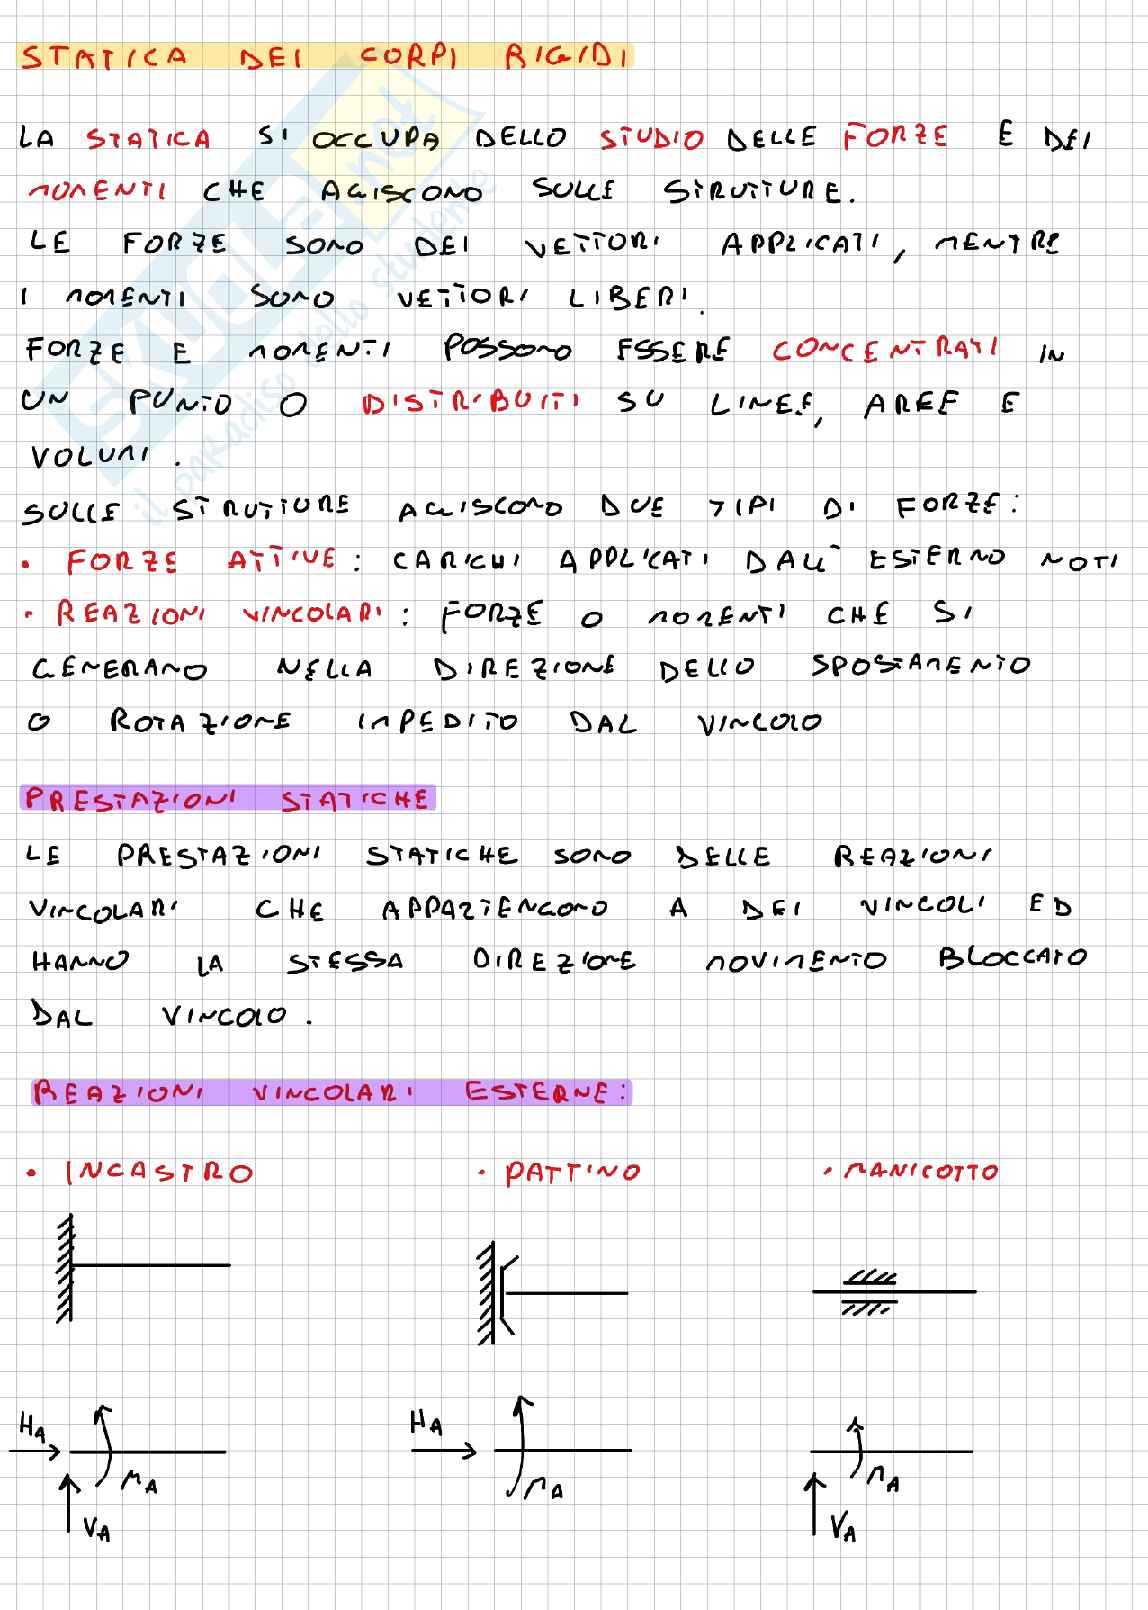 STATICA DEI CORPI RIGIDI
LA STATICA SI OCCUPA DELLO STUDIO DELLE FORZE E DEI
MOMENTI CHE AGISCONO SULLE STRUTTURE.
LE FORZE SONO DEI VETTORI APPLICATI, MENTRE
I MOMENTI SONO VETTORI LIBERI.
FORZE E MOMENTI POSSONO ESSERE CONCENTRATI IN
UN PUNTO O DISTRIBUITI SU LINEE, AREE E
VOLUMI.
SULLE STRUTTURE AGISCONO DUE TIPI DI FORZE:
• FORZE ATTIVE: CARICHI APPLICATI DALL'ESTERNO NOTI
• REAZIONI VINCOLARI: FORZE O MOMENTI CHE SI
GENERANO NELLA DIREZIONE DELLO SPOSTAMENTO
O ROTAZIONE IMPEDITO DAL VINCOLO
PRESTAZIONI STATICHE
LE PRESTAZIONI STATICHE SONO DELLE REAZIONI
VINCOLARI CHE APPARTENGONO A DEI VINCOLI ED
HANNO LA STESSA DIREZIONE MOVIMENTO BLOCCATO
DAL VINCOLO.
REAZIONI VINCOLARI ESTERNE:
• INCASTRO • PATTINO • MANICOTTO
HA HA
MA MA MA
VA VA
SKUOLA.net
il paradiso dello studente